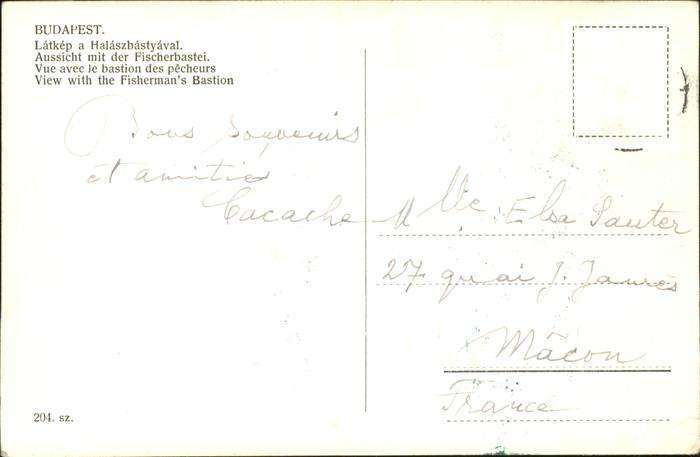 BUDAPEST.
Látkép a Halászbástyával.
Aussicht mit der Fischerbastei.
Vue avec le bastion des pêcheurs
View with the Fisherman's Bastion
Bons Souvenirs
et amitiés
Mlle Elsa Sauter
27 quai J. Jaurès
Mâcon
France
204. sz.